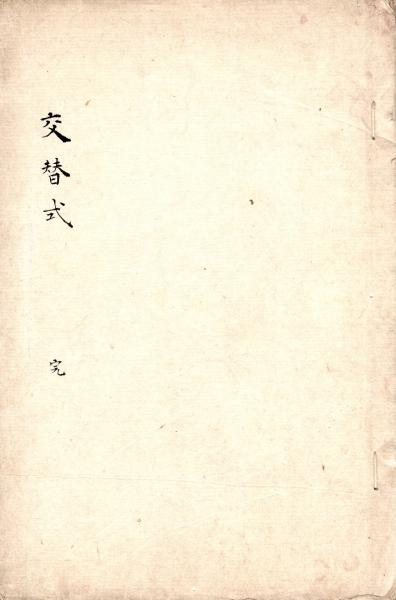 交替式
完